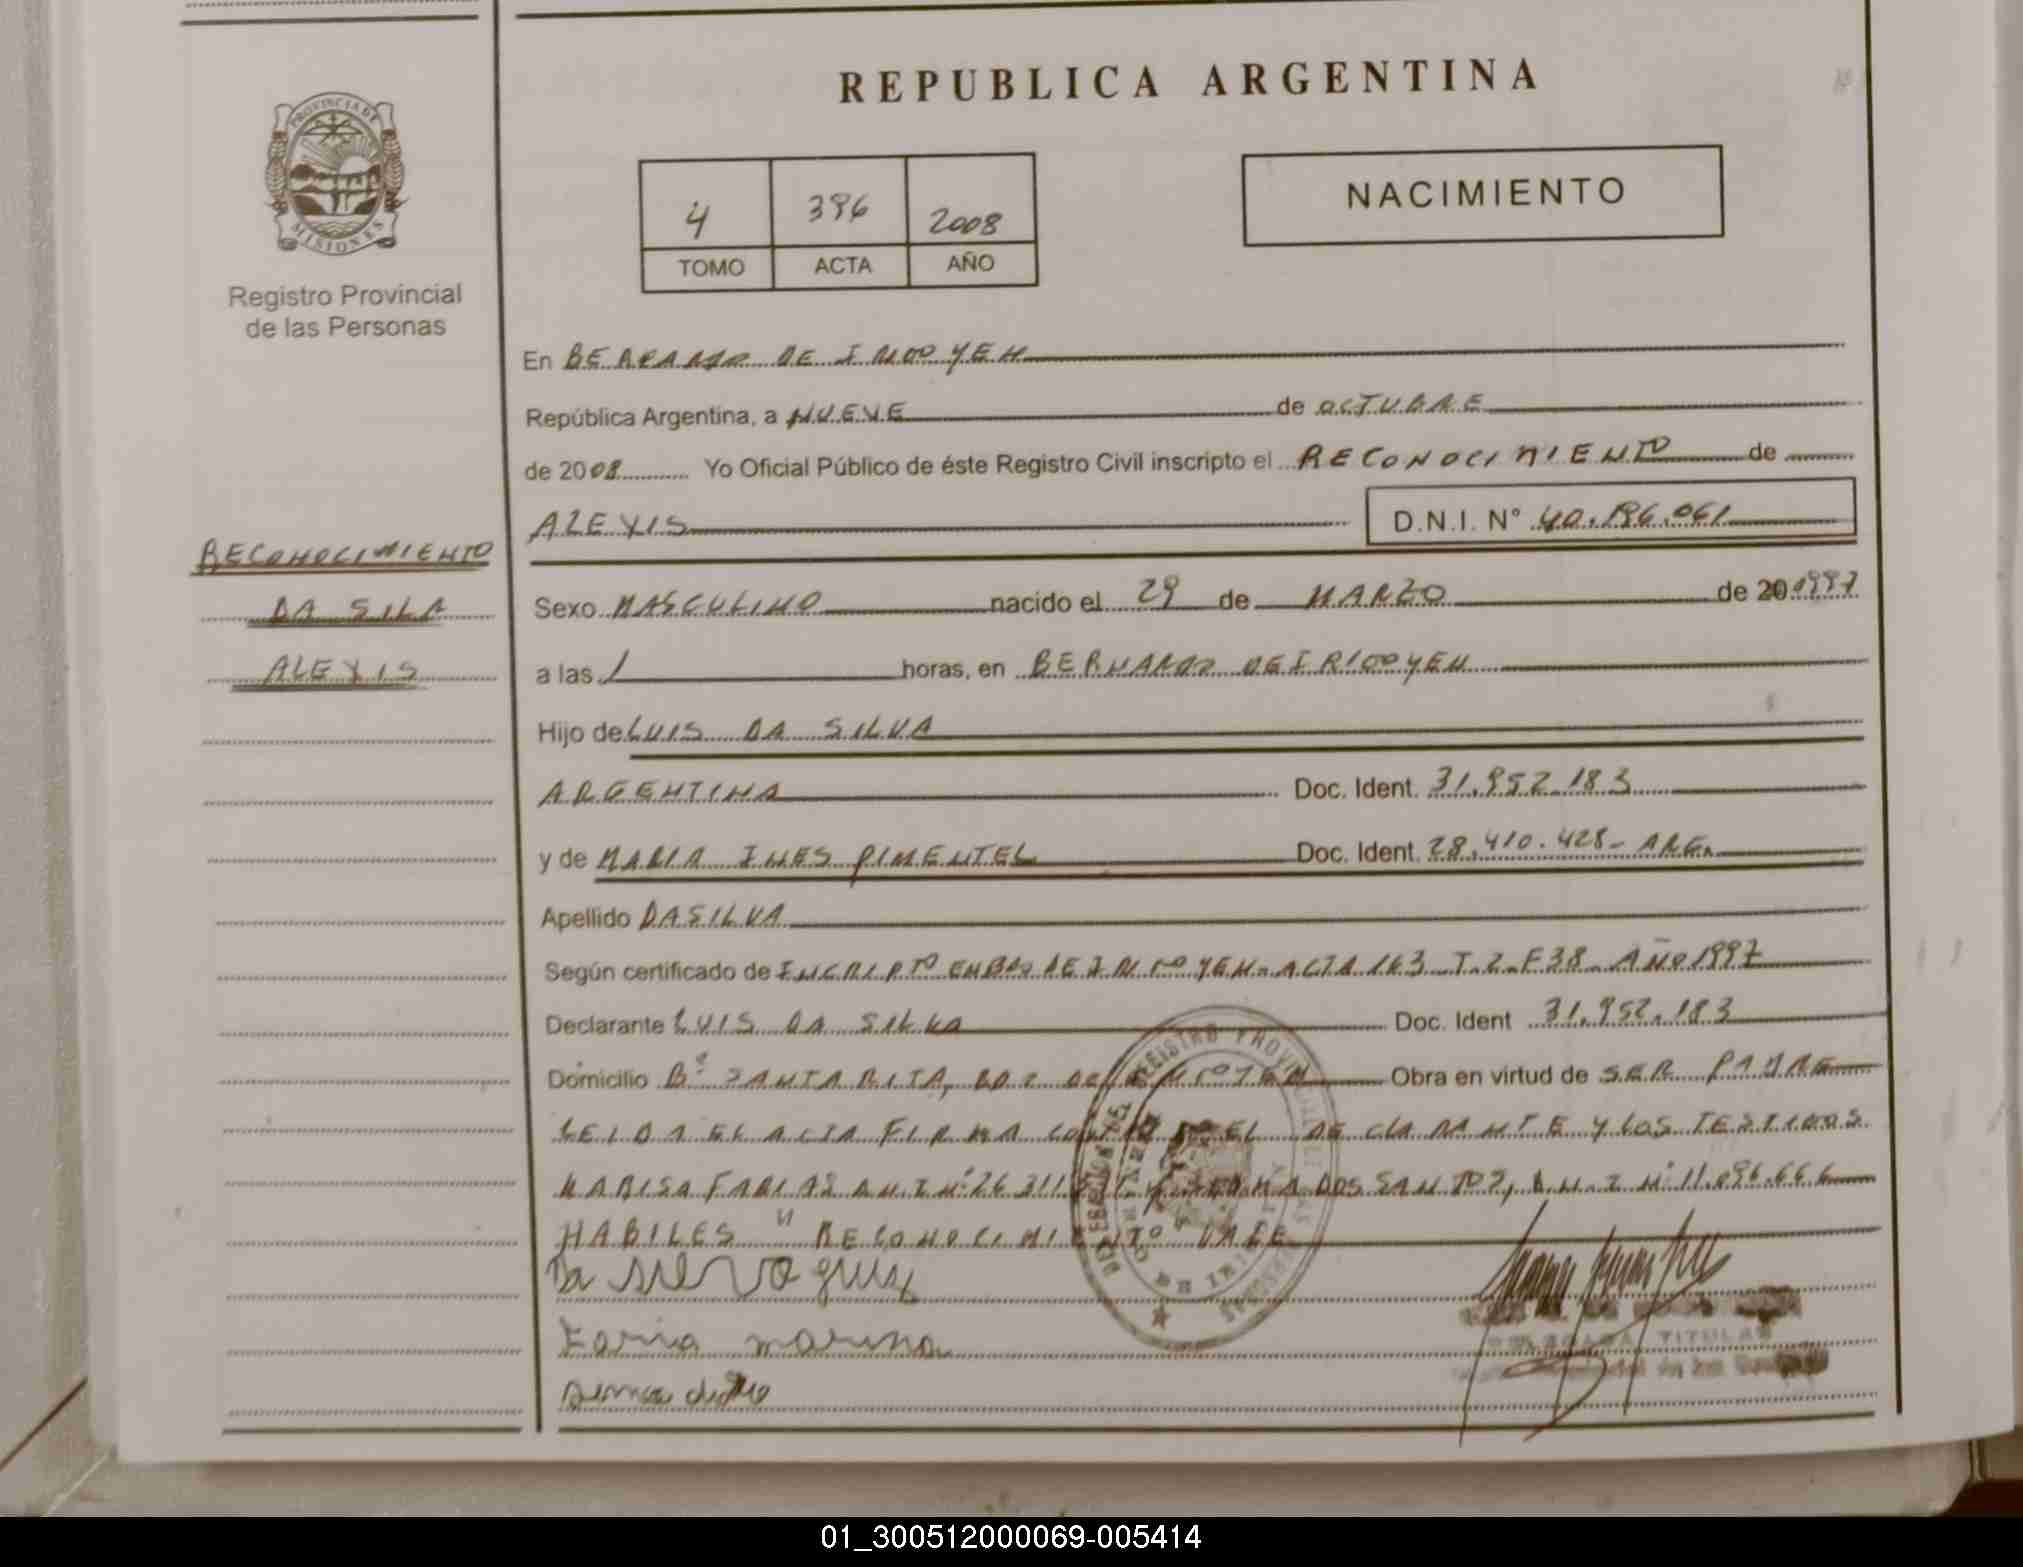 REPUBLICA ARGENTINA
PROVINCIA DE
MISIONES
Registro Provincial
de las Personas
4 396 2008
TOMO ACTA AÑO
NACIMIENTO
En BERNARDO DE IRIGOYEN
República Argentina, a NUEVE de OCTUBRE
de 2008 Yo Oficial Público de éste Registro Civil inscripto el RECONOCIMIENTO de
ALEXIS D.N.I. N° 40.196.061
RECONOCIMIENTO
DA SILA
ALEXIS
Sexo MASCULINO nacido el 29 de MARZO de 20 1997
a las / horas, en BERNARDO DE IRIGOYEN
Hijo de LUIS DA SILVA
ARGENTINA Doc. Ident. 31.952.183
y de MARIA INES PIMENTEL Doc. Ident. 28.410.428- ARG.
Apellido DASILVA
Según certificado de INCRIPTO EN BDO DE IRIGOYEN- ACTA 163 T.2-F38- AÑO 1997
Declarante LUIS DA SILVA Doc. Ident 31.952.183
Domicilio B° SANTA RITA, BDO DE IRIGOYEN Obra en virtud de SER PADRE
LEIDA EL ACTA FIRMA EL DECLARANTE Y LOS TESTIGOS
MARISA FARIAS D.N.I N° 26.311 DOS SANTOS, D.N.I N° 11.096.666
HABILES " RECONOCIMIENTO" VALE
Da silva Luis
Faria marisa
TITULAR
01_300512000069-005414